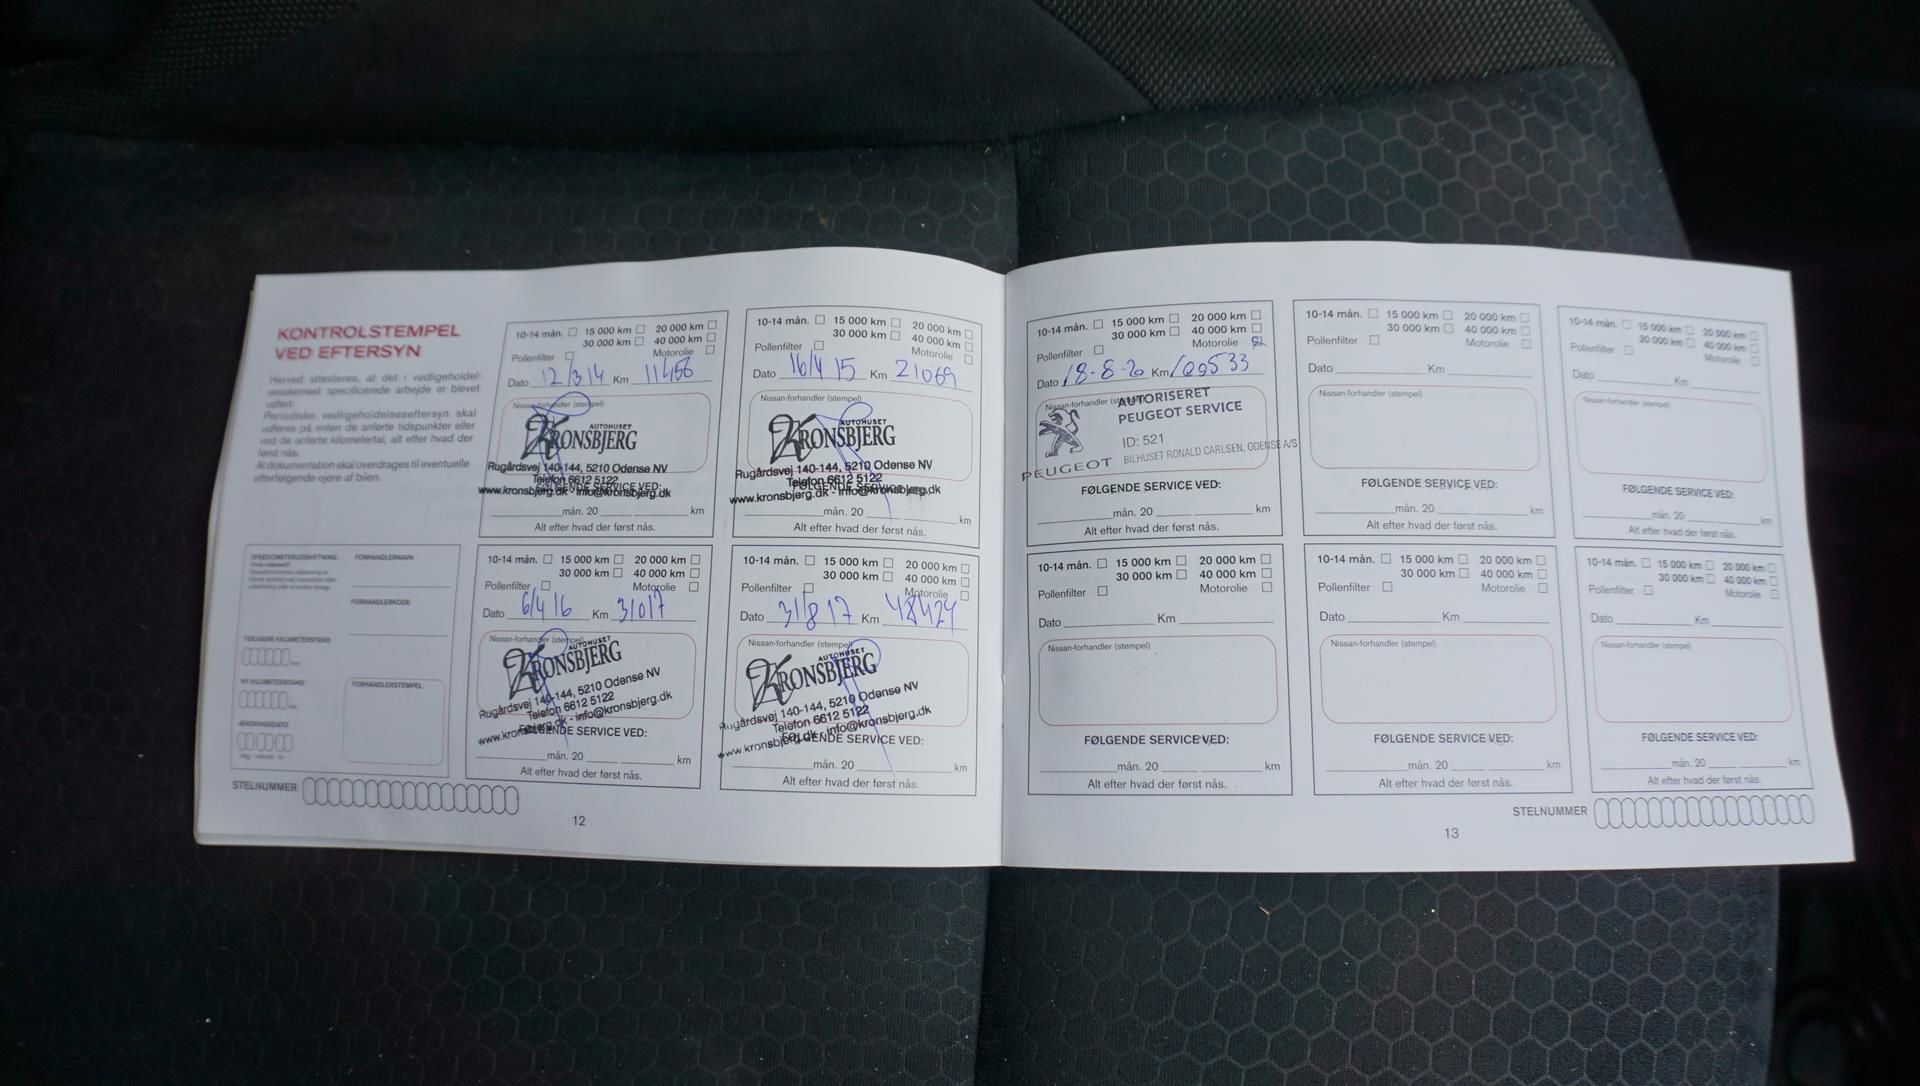 KONTROLSTEMPEL
VED EFTERSYN
Herved attesteres, at det i vedligeholdel-
sesskemaet specificerede arbejde er blevet
udført.
Periodiske vedligeholdelseseftersyn skal
udføres på enten de anførte tidspunkter eller
ved de anførte kilometertal, alt efter hvad der
først nås.
Al dokumentation skal overdrages til eventuelle
efterfølgende ejere af bilen.
10-14 mån. 15 000 km 20 000 km
30 000 km 40 000 km
Pollenfilter Motorolie
Dato 12/3 14 Km 11456
Nissan-forhandler (stempel)
AUTOHUSET
KRONSBJERG
Rugårdsvej 140-144, 5210 Odense NV
Telefon 6612 5122
www.kronsbjerg.dk - info@kronsbjerg.dk
FØLGENDE SERVICE VED:
mån. 20 km
Alt efter hvad der først nås.
10-14 mån. 15 000 km 20 000 km
30 000 km 40 000 km
Pollenfilter Motorolie
Dato 16/4 15 Km 21069
Nissan-forhandler (stempel)
AUTOHUSET
KRONSBJERG
Rugårdsvej 140-144, 5210 Odense NV
Telefon 6612 5122
www.kronsbjerg.dk - info@kronsbjerg.dk
FØLGENDE SERVICE VED:
mån. 20 km
Alt efter hvad der først nås.
SPEEDOMETERUDSKIFTNING
FORHANDLERNAVN
FORHANDLERKODE
TIDLIGERE KILOMETERSTAND
km
NY KILOMETERSTAND
km
ÆNDRINGSDATO
dag - måned - år
FORHANDLERSTEMPEL
10-14 mån. 15 000 km 20 000 km
30 000 km 40 000 km
Pollenfilter Motorolie
Dato 6/4 16 Km 31017
Nissan-forhandler (stempel)
AUTOHUSET
KRONSBJERG
Rugårdsvej 140-144, 5210 Odense NV
Telefon 6612 5122
www.kronsbjerg.dk - info@kronsbjerg.dk
FØLGENDE SERVICE VED:
mån. 20 km
Alt efter hvad der først nås.
10-14 mån. 15 000 km 20 000 km
30 000 km 40 000 km
Pollenfilter Motorolie
Dato 31/8 17 Km 48424
Nissan-forhandler (stempel)
AUTOHUSET
KRONSBJERG
Rugårdsvej 140-144, 5210 Odense NV
Telefon 6612 5122
www.kronsbjerg.dk - info@kronsbjerg.dk
FØLGENDE SERVICE VED:
mån. 20 km
Alt efter hvad der først nås.
STELNUMMER
12
10-14 mån. 15 000 km 20 000 km
30 000 km 40 000 km
Pollenfilter Motorolie
Dato 18-8-20 Km 109533
Nissan-forhandler (stempel)
AUTORISERET
PEUGEOT SERVICE
ID: 521
BILHUSET RONALD CARLSEN, ODENSE A/S
PEUGEOT
FØLGENDE SERVICE VED:
mån. 20 km
Alt efter hvad der først nås.
10-14 mån. 15 000 km 20 000 km
30 000 km 40 000 km
Pollenfilter Motorolie
Dato Km
Nissan-forhandler (stempel)
FØLGENDE SERVICE VED:
mån. 20 km
Alt efter hvad der først nås.
10-14 mån. 15 000 km 20 000 km
30 000 km 40 000 km
Pollenfilter Motorolie
Dato Km
Nissan-forhandler (stempel)
FØLGENDE SERVICE VED:
mån. 20 km
Alt efter hvad der først nås.
10-14 mån. 15 000 km 20 000 km
30 000 km 40 000 km
Pollenfilter Motorolie
Dato Km
Nissan-forhandler (stempel)
FØLGENDE SERVICE VED:
mån. 20 km
Alt efter hvad der først nås.
10-14 mån. 15 000 km 20 000 km
30 000 km 40 000 km
Pollenfilter Motorolie
Dato Km
Nissan-forhandler (stempel)
FØLGENDE SERVICE VED:
mån. 20 km
Alt efter hvad der først nås.
10-14 mån. 15 000 km 20 000 km
30 000 km 40 000 km
Pollenfilter Motorolie
Dato Km
Nissan-forhandler (stempel)
FØLGENDE SERVICE VED:
mån. 20 km
Alt efter hvad der først nås.
STELNUMMER
13